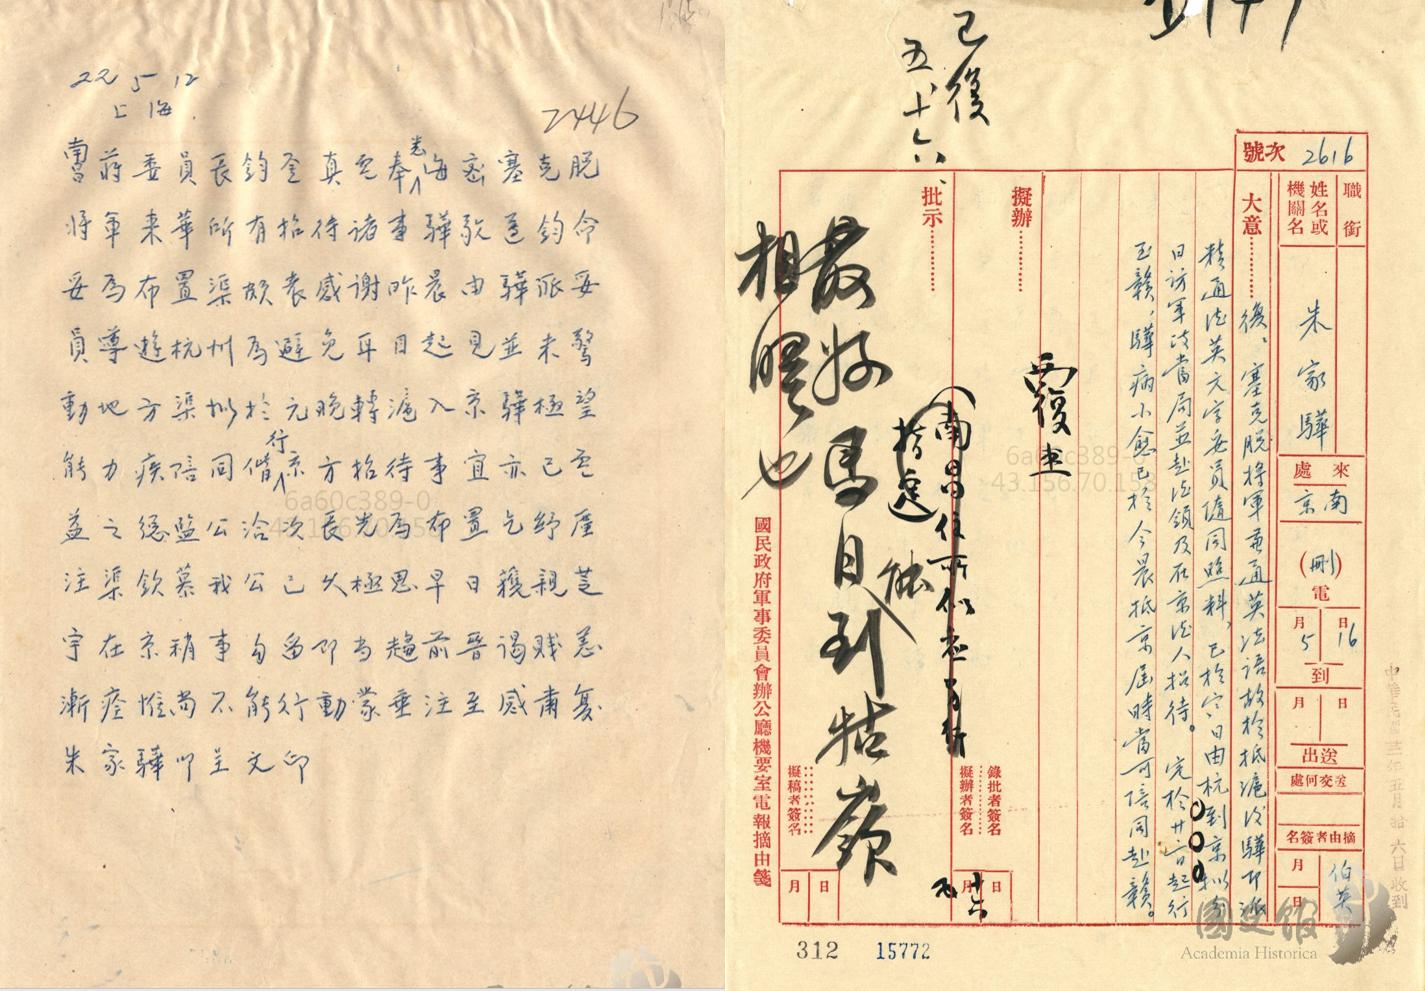 22 5 12
上海
2446
南昌蔣委員長鈞鑒真電奉悉海密塞克脫
將軍來華所有招待諸事驊敬遵鈞令
妥為布置渠頗表感謝昨晨由驊派妥
員導遊杭州為避免耳目起見並未驚
動地方渠擬於元晚轉滬入京驊極望
能力疾陪同偕行京方招待事宜亦已電
益之總監公洽次長先為布置乞紓廑
注渠欽慕我公已久極思早日獲親芝
宇在京稍事勾留即當趨前晉謁賤恙
漸痊惟尚不能行動蒙垂注至感肅复
朱家驊叩呈文印
已復
五、十六、
號次 2616
職銜
姓名或機關名
朱家驊
來處
南京
(刪)電
月 5 日 16
到
月 日
送出
送交何處
摘由者簽名
伯英
月 日
大意
復、塞克脫將軍兼通英法語故於抵滬後驊即派
精通德英文字妥員隨同照料、已於 日由杭到京擬今
日訪軍政當局並赴德領及在京德人招待。完於廿 日起行
至贛、驊病小愈已於今晨抵京屆時當可陪同赴贛。
擬辦
覆
批示
南昌住所似
指定
最好馬日到牯嶺
相晤也
錄批者簽名
擬辦者簽名
擬稿者簽名
月 日
月 日
國民政府軍事委員會辦公廳機要室電報摘由箋
312 15772
6a60c389-0
43.156.70.158
國史館
Academia Historica